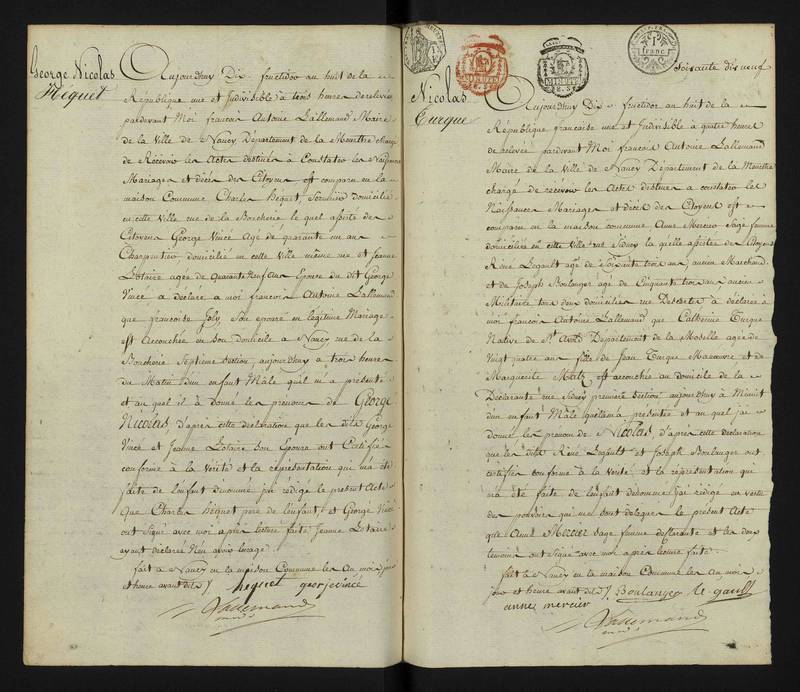 George Nicolas
Hequet
Aujourdhuy Dix fructidor an huit de la
République une et Indivisible à trois heures de relevée
pardevant Moi francois Antoine Lallemand Maire
de la Ville de Nancy Département de la Meurthe chargé
de Recevoir les Actes destinés à Constater les Naissances
Mariages et décès des Citoyens est comparu en la
maison Commune Charles Hequet, domicilié
en cette Ville rue de la Boucherie le quel assisté des
Citoyens George Vincé Agé de quarante un ans
Charpentier domicilié en cette Ville même rue et Jeanne
Lotaire agée de quarante neuf ans Epouse du dit George
Vincé a déclaré a moi francois Antoine Lallemand
que francoise Joly Son épouse en légitime Mariage
est Accouchée en Son domicile a Nancy rue de la
Boucherie Septieme Section, aujourdhuy à trois heures
du Matin d'un enfant Mâle qu'il m'a présenté
et au quel il à donné les prenoms de George
Nicolas, d'après cette déclaration que les dits George
Vincé et Jeanne Lotaire Son Epouse ont Certifié
conforme à la Vérité et la représentation que m'a été
faite de l'enfant denommé, jai rédigé le présent Acte
que Charles hequet pere de l'enfant, et George Vincé
ont Signé avec moi après lecture faite Jeanne Lotaire
ayant déclaré n'en avoir l'usage.
fait à Nancy en la maison Commune les An mois jour
et heure avant dits /. hequet georjevincé
Lallemand
Soixante dix neuf
Nicolas
Turque
Aujourdhuy Dix fructidor an huit de la
République francaise une et Indivisible à quatre heures
de relevée pardevant Moi francois Antoine Lallemand
Maire de la Ville de Nancy Département de la Meurthe
chargé de recevoir les Actes destinés a constater les
Naissances Mariages et décès des Citoyens est
comparu en la maison commune Anne Mercier Sage femme
domiciliée en cette Ville rue Sidney la quelle assistée des Citoyens
René Legault agé de Soixante trois ans, ancien Marchand
et de Joseph Boulanger agé de Cinquante trois ans, ancien
Militaire tous deux domiciliés rue à déclaré à
moi francois Antoine Lallemand que Catherine Turque
Native de St. Avold Département de la Moselle agée de
Vingt quatre ans fille de Jean Turque Manœuvre et de
Marguerite est accouchée au domicile de la
Déclarante rue Sidney premiere Section, aujourdhuy à Minuit
d'un enfant Mâle quelle m'a présenté et au quel jai
donné les prenom de Nicolas, d'après cette déclaration
que les dits René Legault et Joseph Boulanger ont
certifiés conforme à la Verité, et la représentation que
m'a été faite de l'enfant dénommé, jai rédigé en vertu
des pouvoirs qui me sont délégués le présent Acte
que Anne Mercier Sage femme déclarante et les deux
temoins ont Signé avec moi après lecture faite.
fait à Nancy en la maison Commune les An mois
jour et heure avant dits /. Boulanger le gault
anne mercier
Lallemand